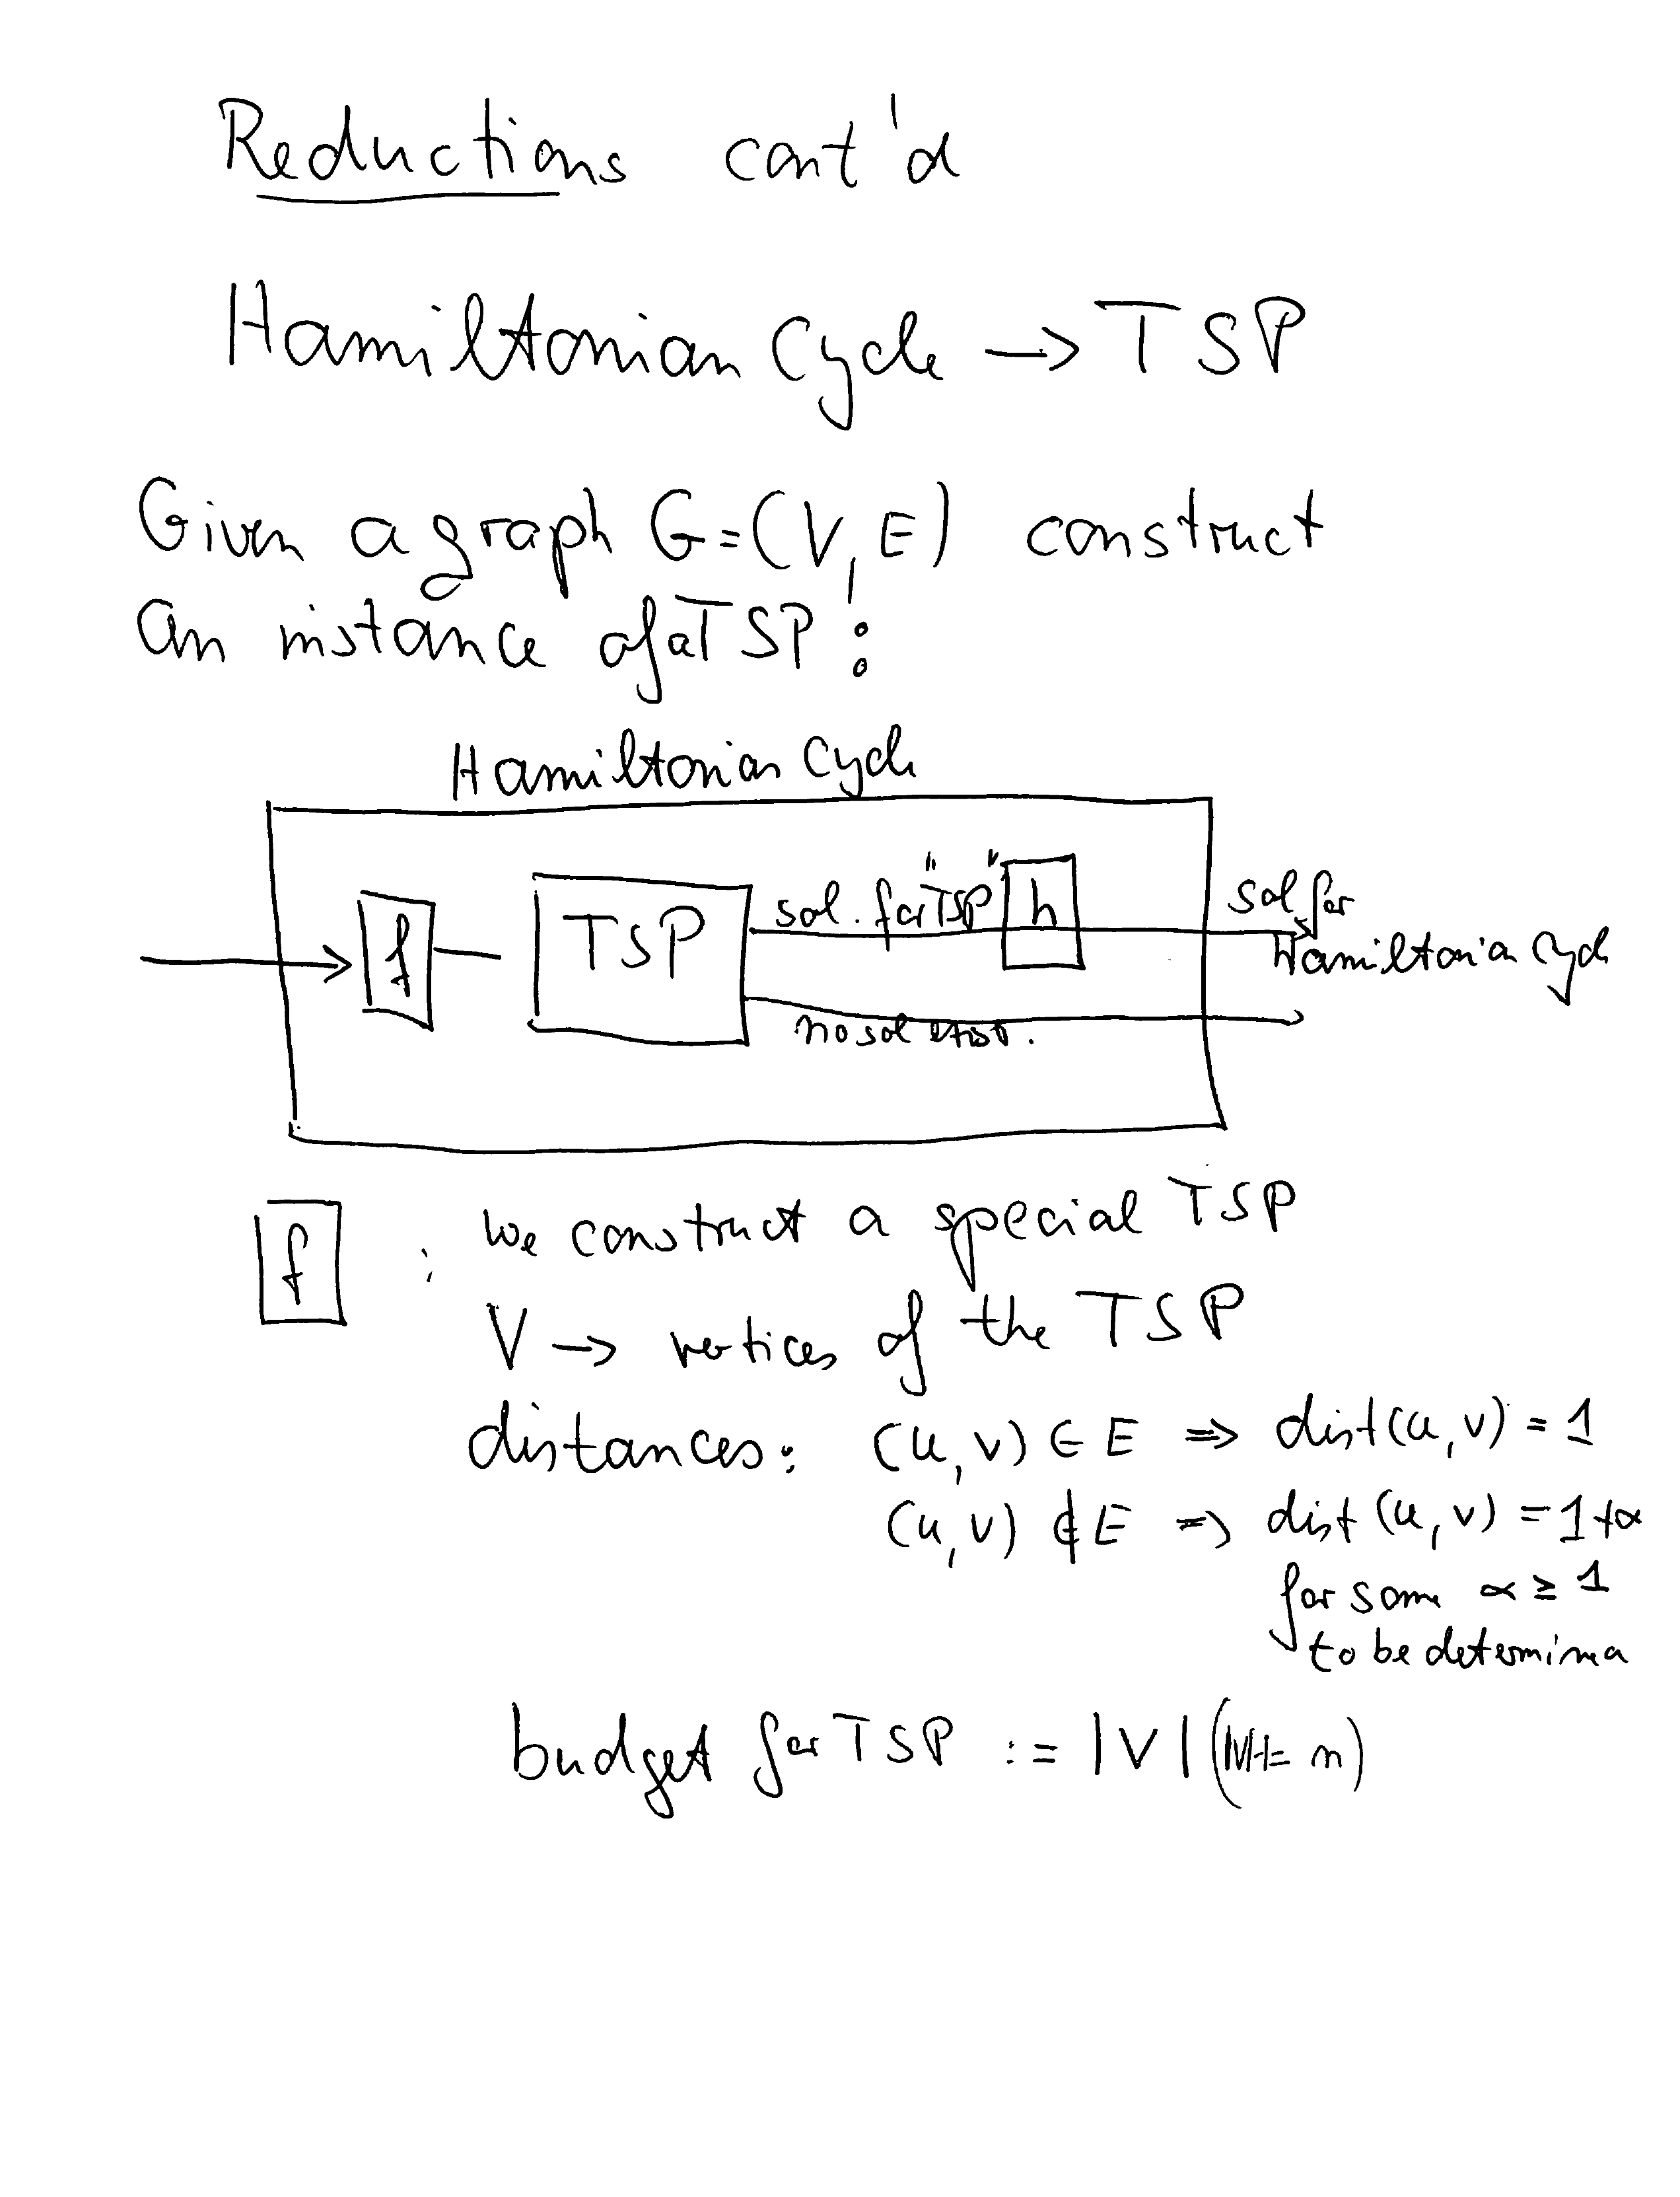 Reductions cont'd
Hamiltonian Cycle → TSP
Given a graph G=(V,E) construct
an instance of a TSP:
Hamiltonian Cycle
f
TSP
sol. for "TSP"
h
sol for
Hamiltonian Cycle
no sol exist.
f : we construct a special TSP
V → vertices of the TSP
distances: (u,v) ∈ E ⇒ dist(u,v) = 1
(u,v) ∉ E ⇒ dist(u,v) = 1+α
for some α ≥ 1
to be determined
budget for TSP := |V| (|V|= n)